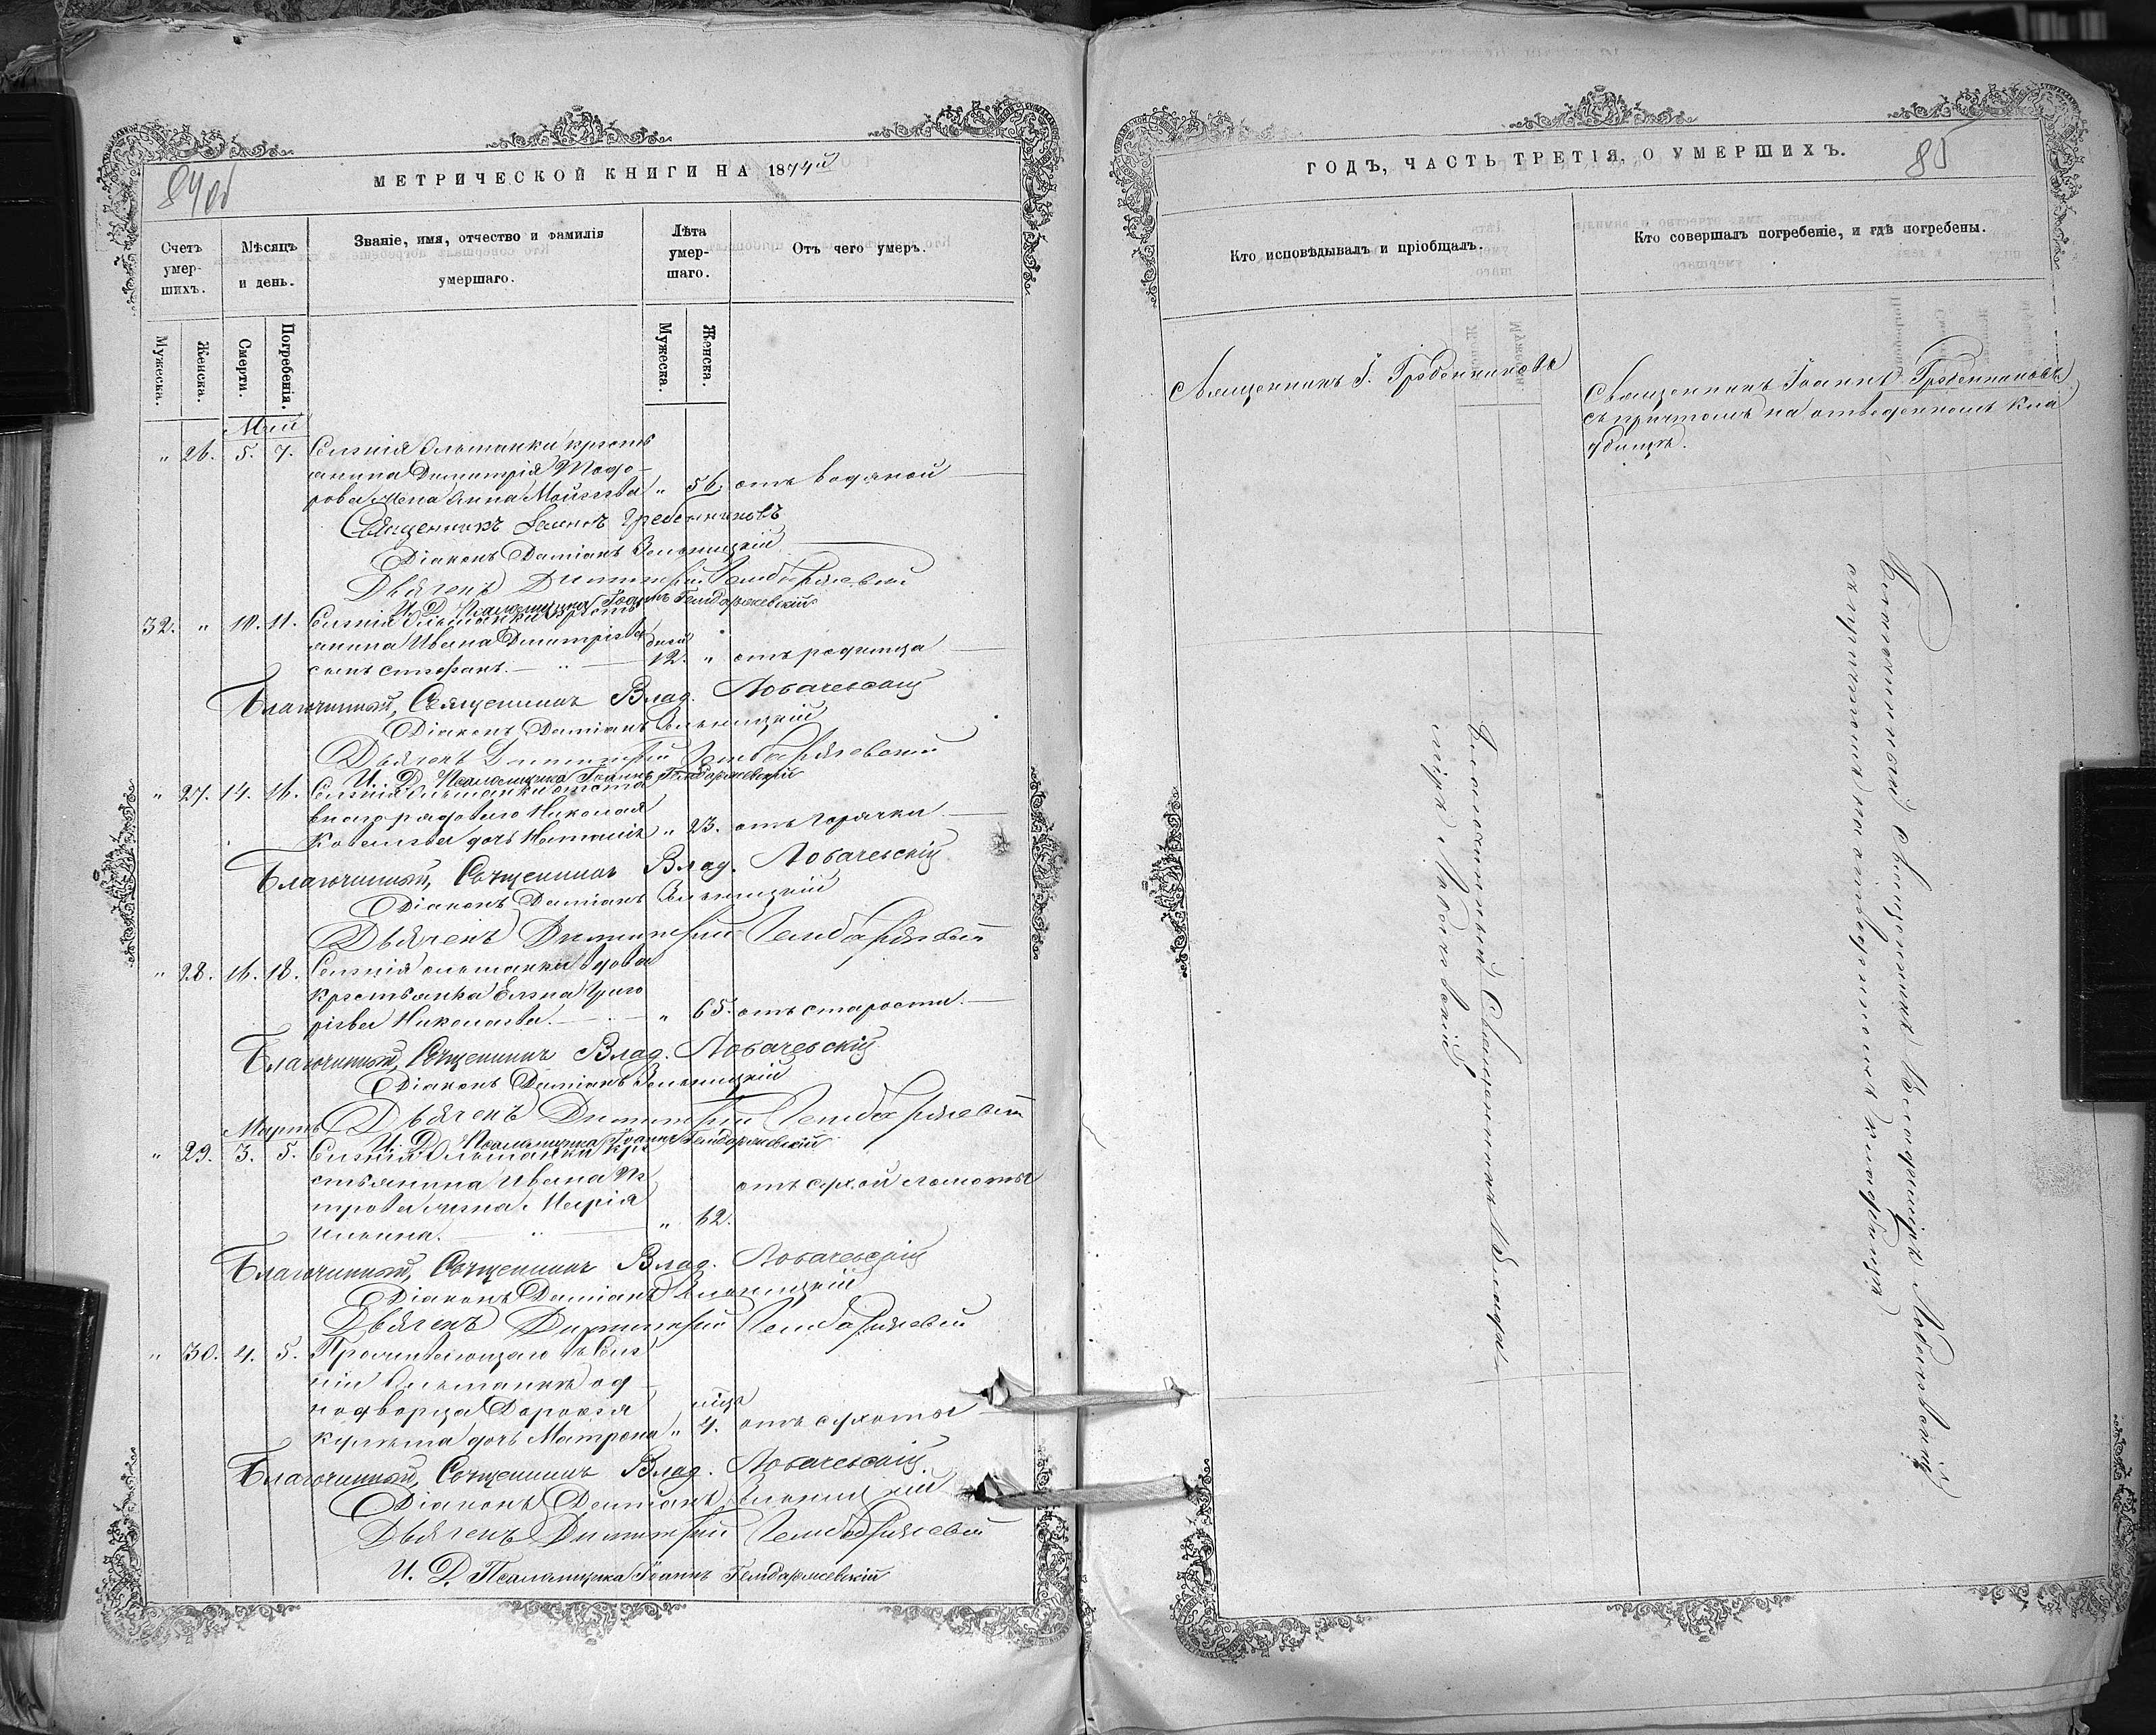 МЕТРИЧЕСКОЙ КНИГИ НА 1874й
84 об
Счетъ умер-шихъ.
Мѣсяцъ и день.
Званіе, имя, отчество и фамилія умершаго.
Лѣта умер-шаго.
Отъ чего умеръ.
Мужеска.
Женска.
Смерти.
Погребенія.
Мужеска.
Женска.
Май
" 26. 5. 7. Селенія Ольшанки кресть
янина Димитрія Тодо-
рова жена Анна Мойсеева " 56. отъ водяной
Священникъ Іоаннъ Гребенниковъ
Діаконъ Даміанъ
Дьячекъ Димитрій Гембаржевскій
И. Д. Псаломщика Іоаннъ Гембаржевскій
32. " 10. 11. Селенія Ольшанки кресть
янина Ивана Димитріева дней
сынъ Стефанъ. " 12. " отъ родимца
Благочинный, Священникъ Влад. Лобачевскій
Діаконъ Даміанъ
Дьячекъ Димитрій Гембаржевскій
И. Д. Псаломщика Іоаннъ Гембаржевскій
" 27. 14. 16. Селенія Ольшанки отста
внаго рядоваго Николая
дочь Наталія " 23. отъ горячки
Благочинный, Священникъ Влад. Лобачевскій
Діаконъ Даміанъ
Дьячекъ Димитрій Гембаржевскій
" 28. 16. 18. Селенія Ольшанки вдова
крестьянка Елена Григо
ріева Николаева. " 65. отъ старости.
Благочинный, Священникъ Влад. Лобачевскій
Діаконъ Даміанъ
Дьячекъ Димитрій Гембаржевскій
Мартъ
И. Д. Псаломщика Іоаннъ Гембаржевскій
" 29. 3. 5. Селенія Ольшанки кре
стьянина Ивана Пе
трова жена Марія отъ сухой ломоты
Ильина. " " 62.
Благочинный, Священникъ Влад. Лобачевскій
Діаконъ Даміанъ
Дьячекъ Димитрій Гембаржевскій
" 30. 4. 5. Проживающаго въ Селе
ніи Ольшанкѣ од
нодворца Дороѳея
дочь Матрона " 4. отъ сухоты
Благочинный, Священникъ Влад. Лобачевскій
Діаконъ Даміанъ
Дьячекъ Димитрій Гембаржевскій
И. Д. Псаломщика Іоаннъ Гембаржевскій
ГОДЪ, ЧАСТЬ ТРЕТІЯ, О УМЕРШИХЪ.
85
Кто исповѣдывалъ и пріобщалъ.
Кто совершалъ погребеніе, и гдѣ погребены.
Священникъ І. Гребенниковъ
Священникъ Іоаннъ Гребенниковъ
съ причтомъ на отведенномъ кла
дбищѣ.
Благочинный Священникъ Влади
міръ Лобачевскій
Благочинный Священникъ Владиміръ Лобачевскій
съ причтомъ на отведенномъ кладбищѣ